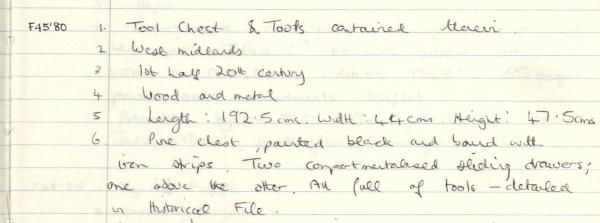 F45'80 1. Tool Chest & Tools contained therein.
2 West midlands
3 1st half 20th century
4 Wood and metal
5 Length: 192.5cms. Width: 44cms. Height: 47.5cms
6. Pine chest, painted black and bound with
iron strips. Two compartmentalised sliding drawers;
one above the other. All full of tools – detailed
in Historical File.